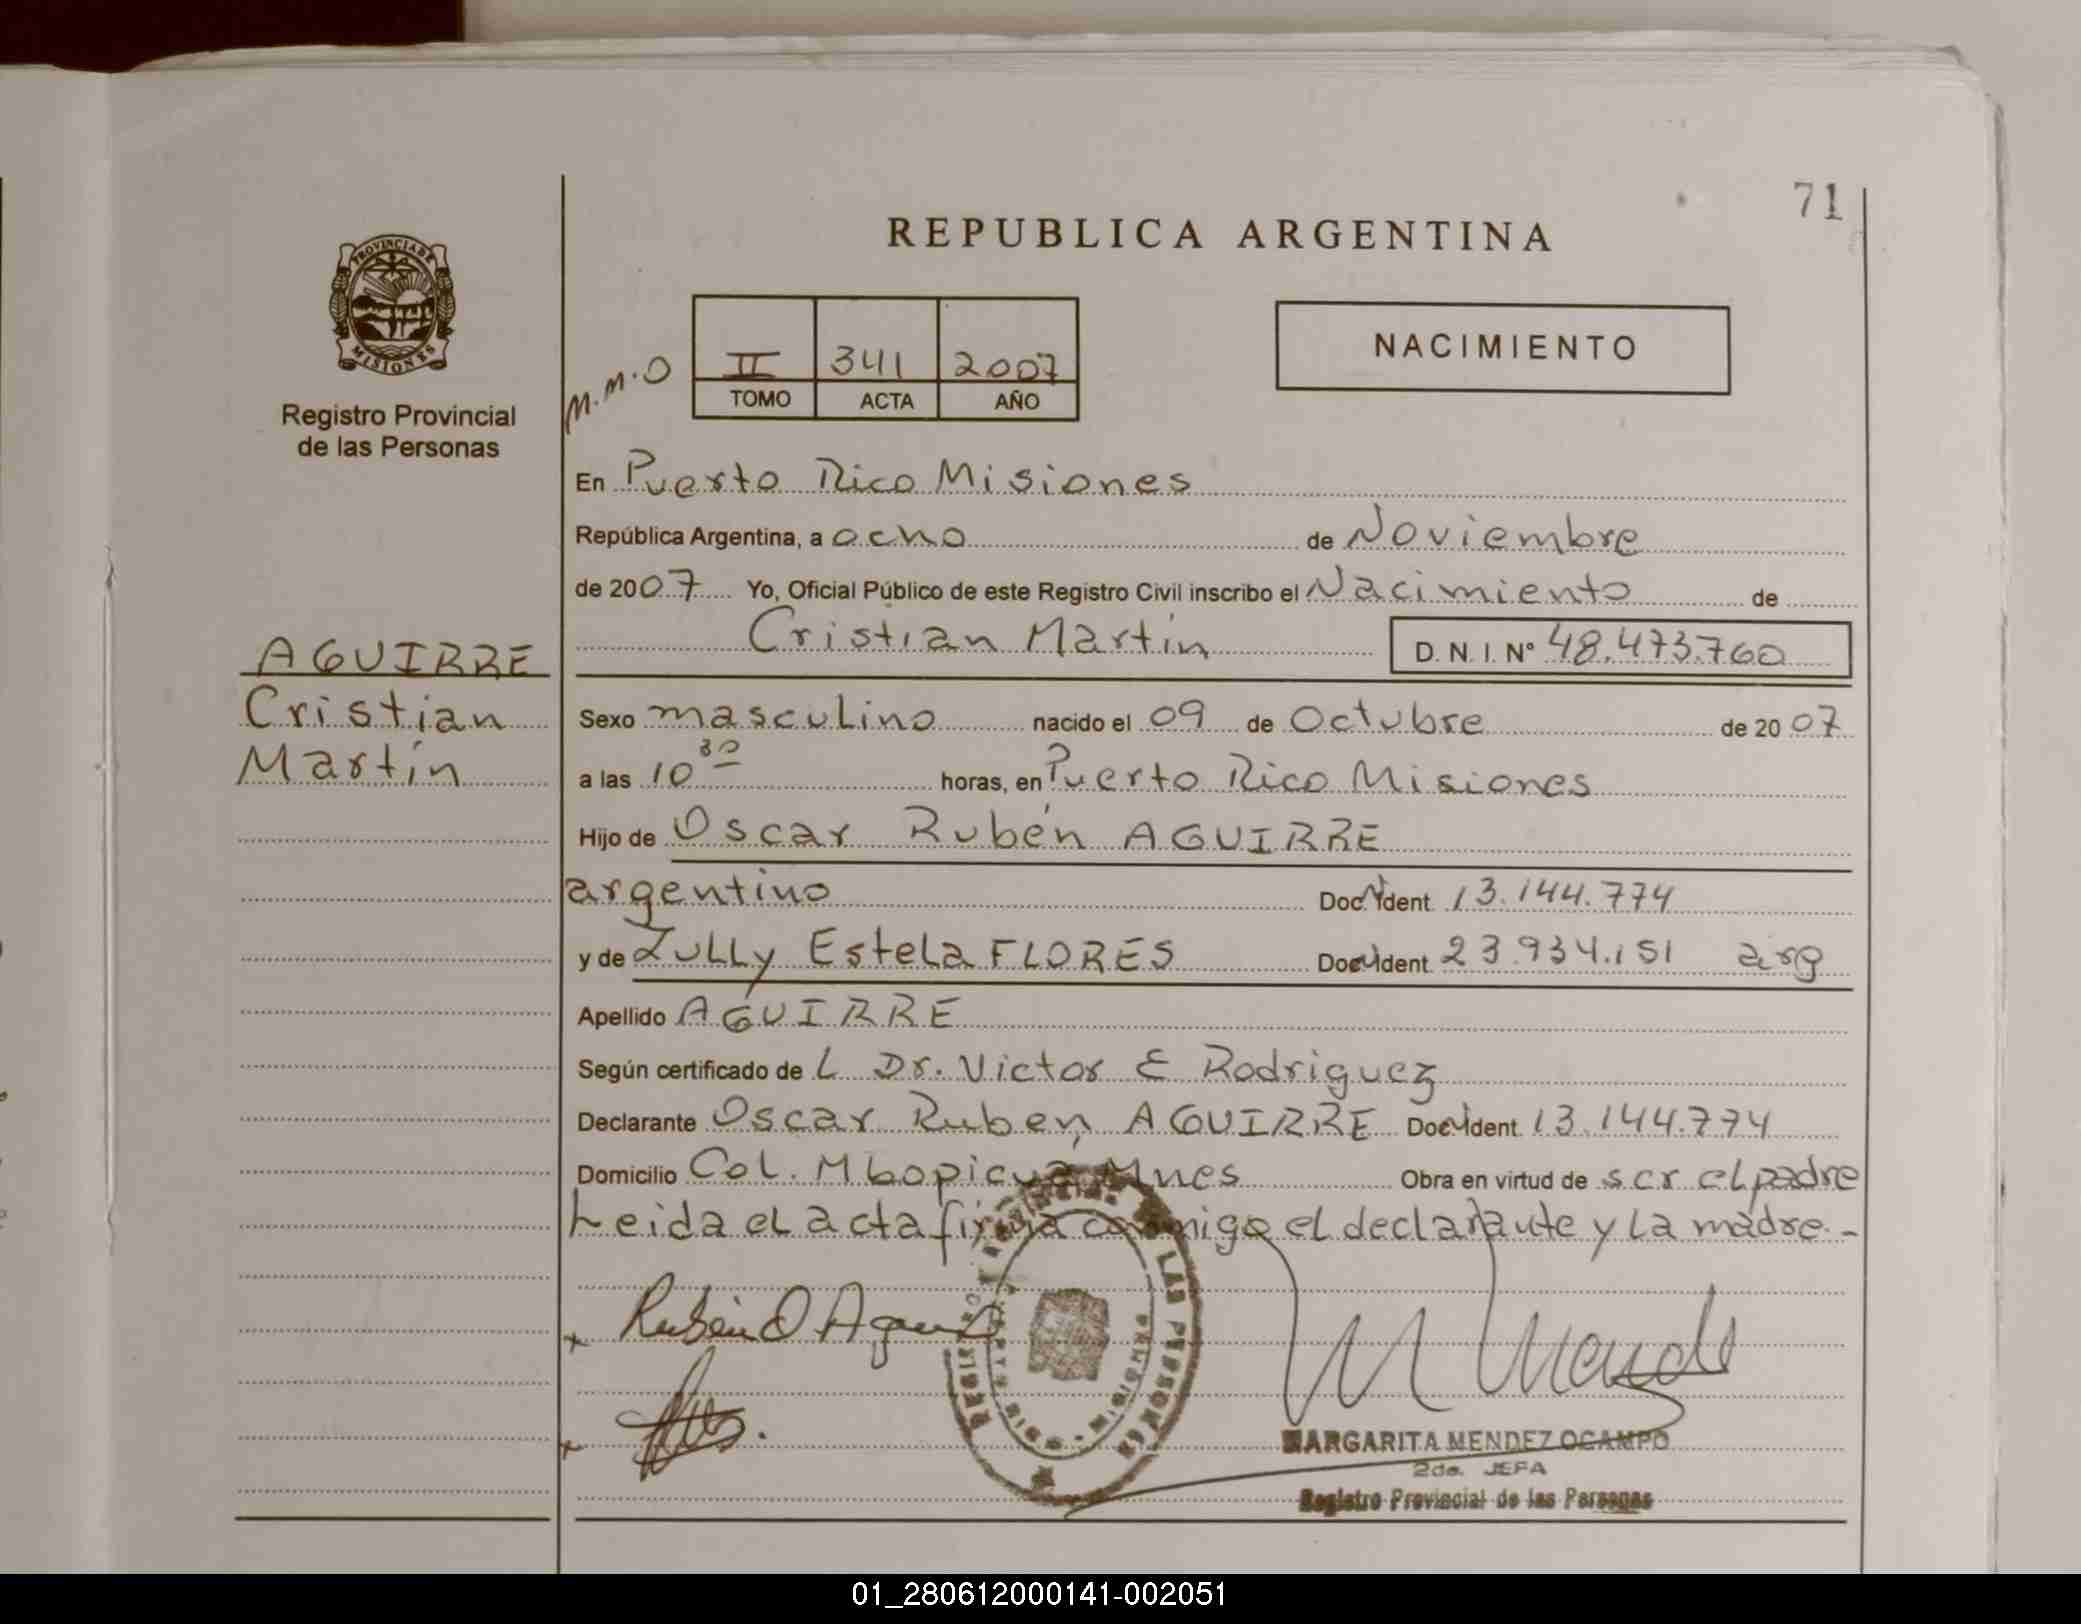 71
REPUBLICA ARGENTINA
PROVINCIA DE
MISIONES
Registro Provincial
de las Personas
M.M.O
II 341 2007
TOMO ACTA AÑO
NACIMIENTO
En Puerto Rico Misiones
República Argentina, a ocho de Noviembre
de 2007 Yo, Oficial Público de este Registro Civil inscribo el Nacimiento de
Cristian Martín D. N. I. N° 48.473.760
AGUIRRE
Cristian
Martín
Sexo masculino nacido el 09 de Octubre de 2007
a las 10 30 horas, en Puerto Rico Misiones
Hijo de Oscar Rubén AGUIRRE
argentino Doc. Ident. 13.144.774
y de Zully Estela FLORES Doc. Ident. 23.934.151 arg
Apellido AGUIRRE
Según certificado de L Dr. Victor E Rodriguez
Declarante Oscar Ruben AGUIRRE Doc. Ident. 13.144.774
Domicilio Col. Mbopicua Mnes Obra en virtud de ser el padre
Leida el acta firma conmigo el declarante y la madre.-
x Rubén O Aguirre
x
LAS PERSONAS
MARGARITA MENDEZ OCAMPO
2da. JEFA
Registro Provincial de las Personas
01_280612000141-002051